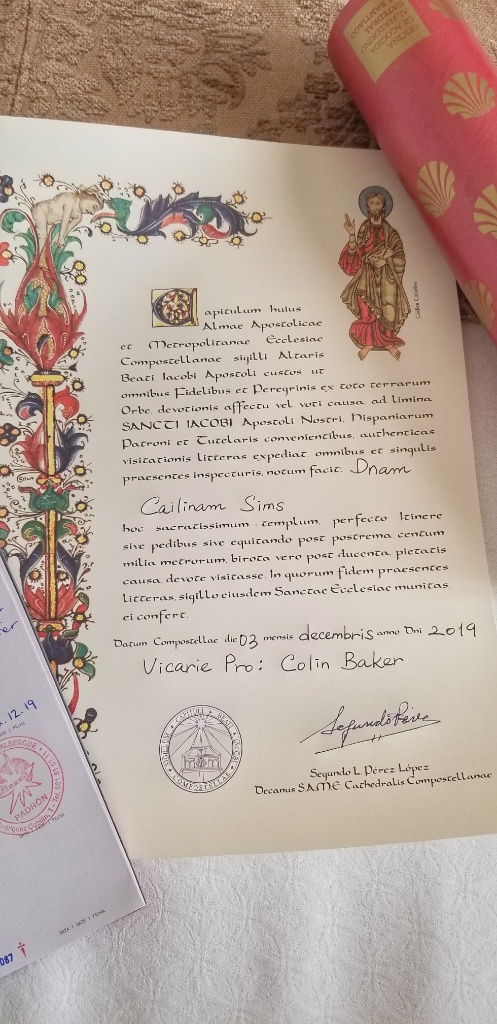 OFICINA
DE ACOGIDA
AL PEREGRINO
CATEDRAL DE
SANTIAGO
Capitulum huius
Almae Apostolicae
et Metropolitanae Ecclesiae
Compostellanae sigilli Altaris
Beati Iacobi Apostoli custos ut
omnibus Fidelibus et Peregrinis ex toto terrarum
Orbe, devotionis affectu vel voti causa, ad limina
SANCTI IACOBI Apostoli Nostri, Hispaniarum
Patroni et Tutelaris convenientibus, authenticas
visitationis litteras expediat, omnibus et singulis
praesentes inspecturis, notum facit: Dnam
Cailinam Sims
hoc sacratissimum templum, perfecto Itinere
sive pedibus sive equitando post postrema centum
milia metrorum, birota vero post ducenta, pietatis
causa, devote visitasse. In quorum fidem praesentes
litteras, sigillo eiusdem Sanctae Ecclesiae munitas,
ei confert.
Datum Compostellae die 03 mensis decembris anno Dni 2019
Vicarie Pro: Colin Baker
SIGILLUM CAPITULI BEATI JACOBI COMPOSTELLAE
Segundo L. Pérez López
Decanus S.A.M.E. Cathedralis Compostellanae
.12.19
ALBERGUE
PADRÓN
DATA / DATE / FECHA
087